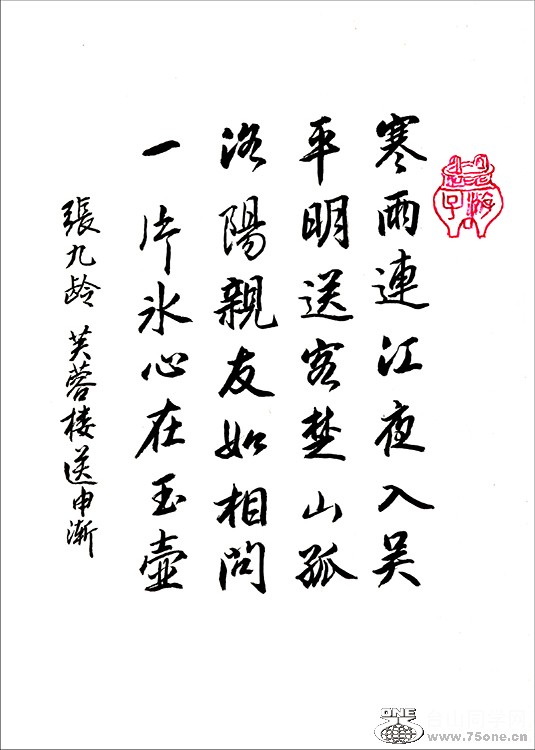 寒雨連江夜入吴
平明送客楚山孤
洛陽親友如相問
一片氷心在玉壺
張九龄 芙蓉楼送申漸
ONE
台山同学网
www.75one.cn